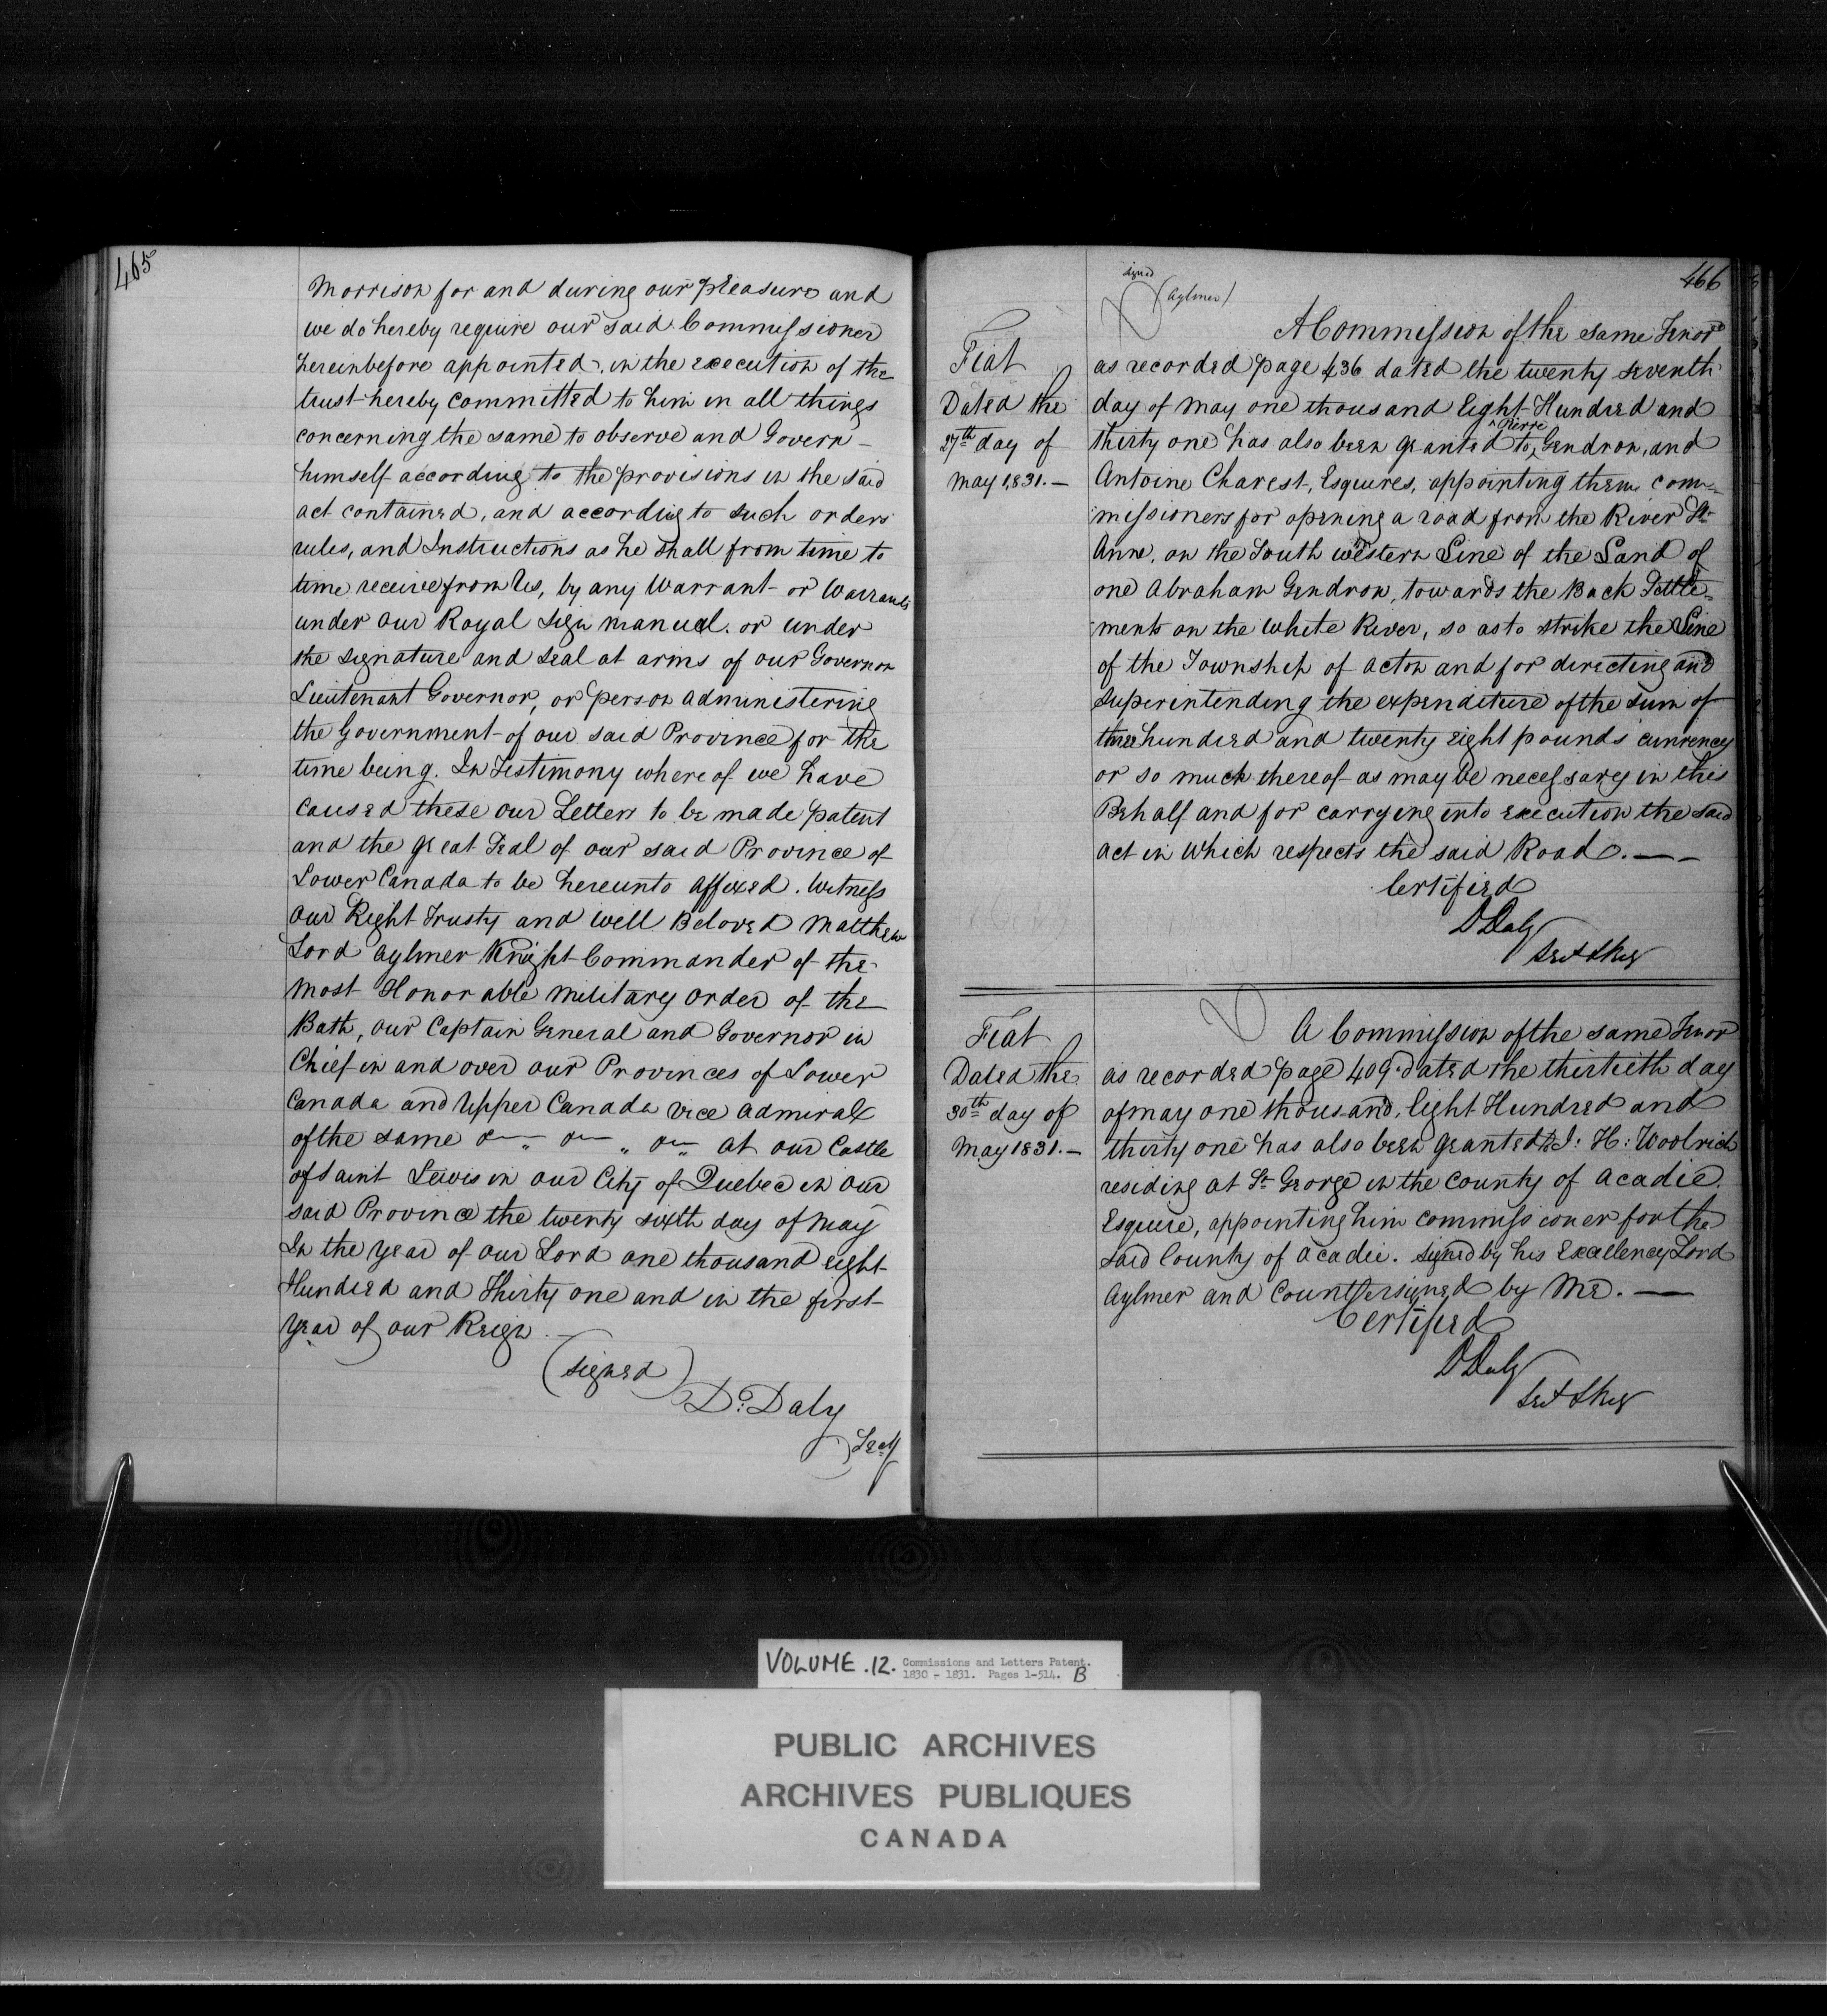 465
Morrison for and during our pleasure and
we do hereby require our said Commissioner
hereinbefore appointed, in the execution of the
trust hereby committed to him in all things
concerning the same to observe and Govern -
himself according to the provisions in the said
act contained, and according to such orders
rules, and Instructions as he shall from time to
time receive from Us, by any Warrant or Warrants
under our Royal Sign manual. or under
the signature and seal at arms of our Governor
Lieutenant Governor, or person administering
the Government of our said Province for the
time being. In Testimony whereof we have
caused these our Letters to be made patent
and the great Seal of our said Province of
Lower Canada to be hereunto affixed. Witness
our Right Trusty and well Beloved Matthew
Lord Aylmer Knight Commander of the
most Honorable military order of the
Bath, our Captain General and Governor in
Chief in and over our Provinces of Lower
Canada and Upper Canada vice admiral
of the same at our Castle
of Saint Lewis in our City of Quebec in our
said Province the twenty sixth day of May
In the year of our Lord one thousand eight
Hundred and Thirty one and in the first
year of our Reign. —
(signed)
D. Daly
Secy
466
signed
(Aylmer)
Fiat
Dated the
27th day of
May 1831. —
A Commission of the same Tenor
as recorded page 436 dated the twenty seventh
day of May one thousand Eight Hundred and
thirty one has also been granted to ^Pierre Gendron, and
Antoine Charest, Esquires, appointing them com=
missioners for opening a road from the River St.
Anne, on the South western Line of the Land of
one Abraham Gendron, towards the Back Settle=
ments on the White River, so as to strike the Line
of the Township of Acton and for directing and
superintending the expenditure of the sum of
three hundred and twenty eight pounds currency
or so much thereof as may be necessary in this
Behalf and for carrying into execution the said
act in which respects the said Road. — –
Certified
D Daly
Fiat
Dated the
30th day of
May 1831. —
A Commission of the same Tenor
as recorded page 409. dated the thirtieth day
of may one thousand, Eight Hundred and
thirty one has also been granted to J: H: Woolrich
residing at St. George in the County of Acadie.
Esquire, appointing him commissioner for the
said County of Acadie. signed by his Excellency Lord
Aylmer and Countersigned by Me. —
Certified
D Daly
VOLUME .12. Commissions and Letters Patent.
1830 - 1831. Pages 1-514. B
PUBLIC ARCHIVES
ARCHIVES PUBLIQUES
CANADA